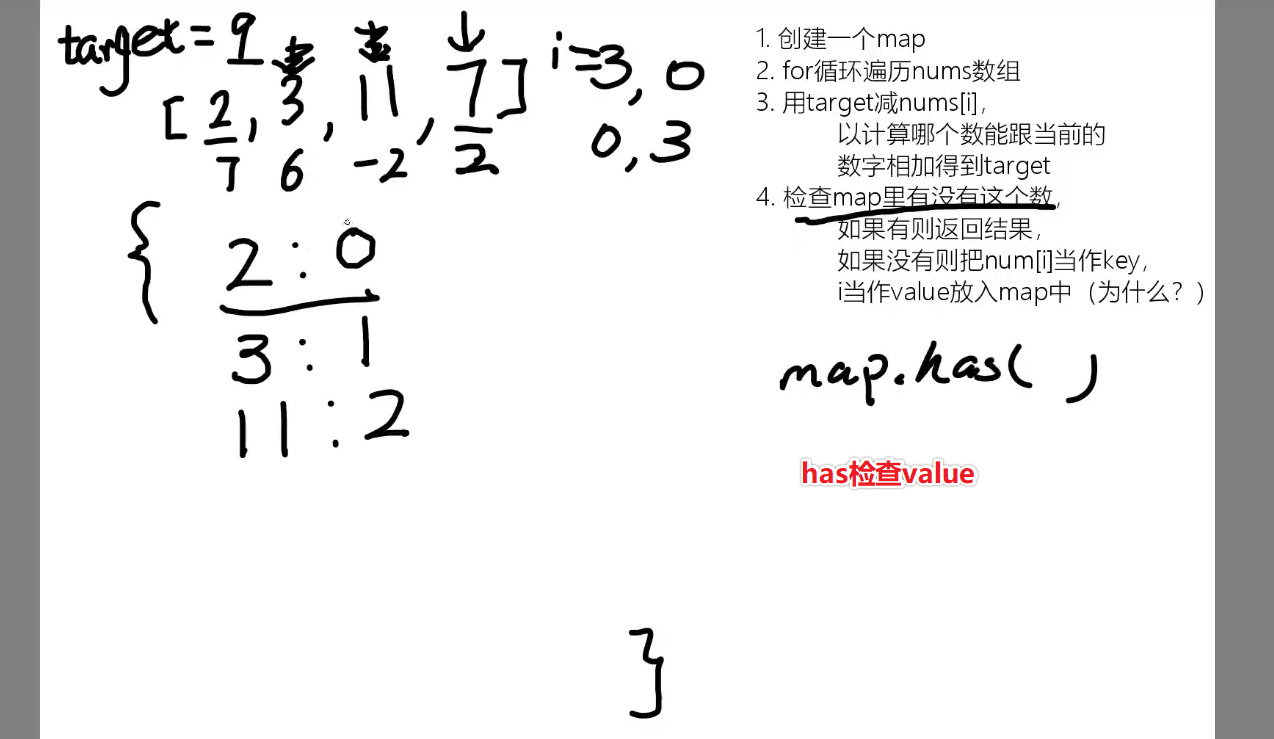 target = 9
[ 2, 3, 11, 7 ]
7 6 -2 2
i=3, 0
0, 3
{
2 : 0
3 : 1
11 : 2
}
1. 创建一个map
2. for循环遍历nums数组
3. 用target减nums[i],
以计算哪个数能跟当前的
数字相加得到target
4. 检查map里有没有这个数,
如果有则返回结果,
如果没有则把num[i]当作key,
i当作value放入map中（为什么？）
map.has( )
has检查value